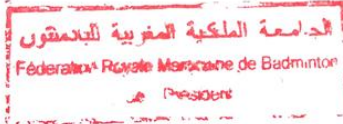 الجامعة الملكية المغربية للبادمنتون
Fédération Royale Marocaine de Badminton
Président